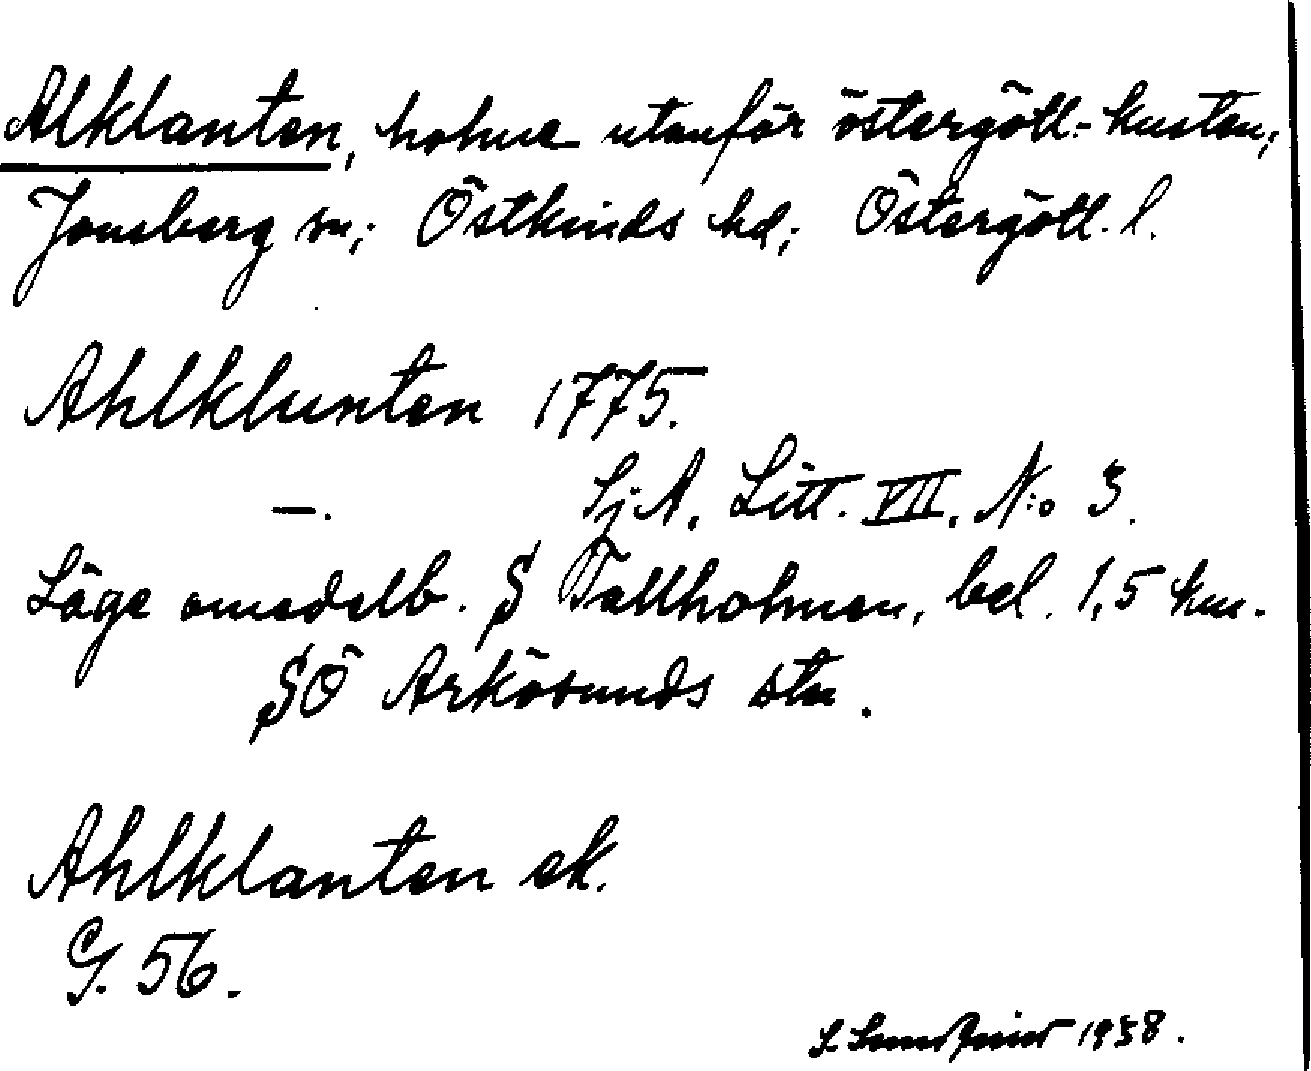 Alklanten, holme utanför östergötl. kusten,
Jonsberg sn; Östkinds hd; Östergötl. l.
Ahlklunten 1775.
—. SjA. Litt. VII. N:o 3.
Läge omedelb. S Tallholmen, bel. 1,5 km.
SÖ Arkösunds stn.
Ahlklanten ek.
G. 56.
S. 1938.